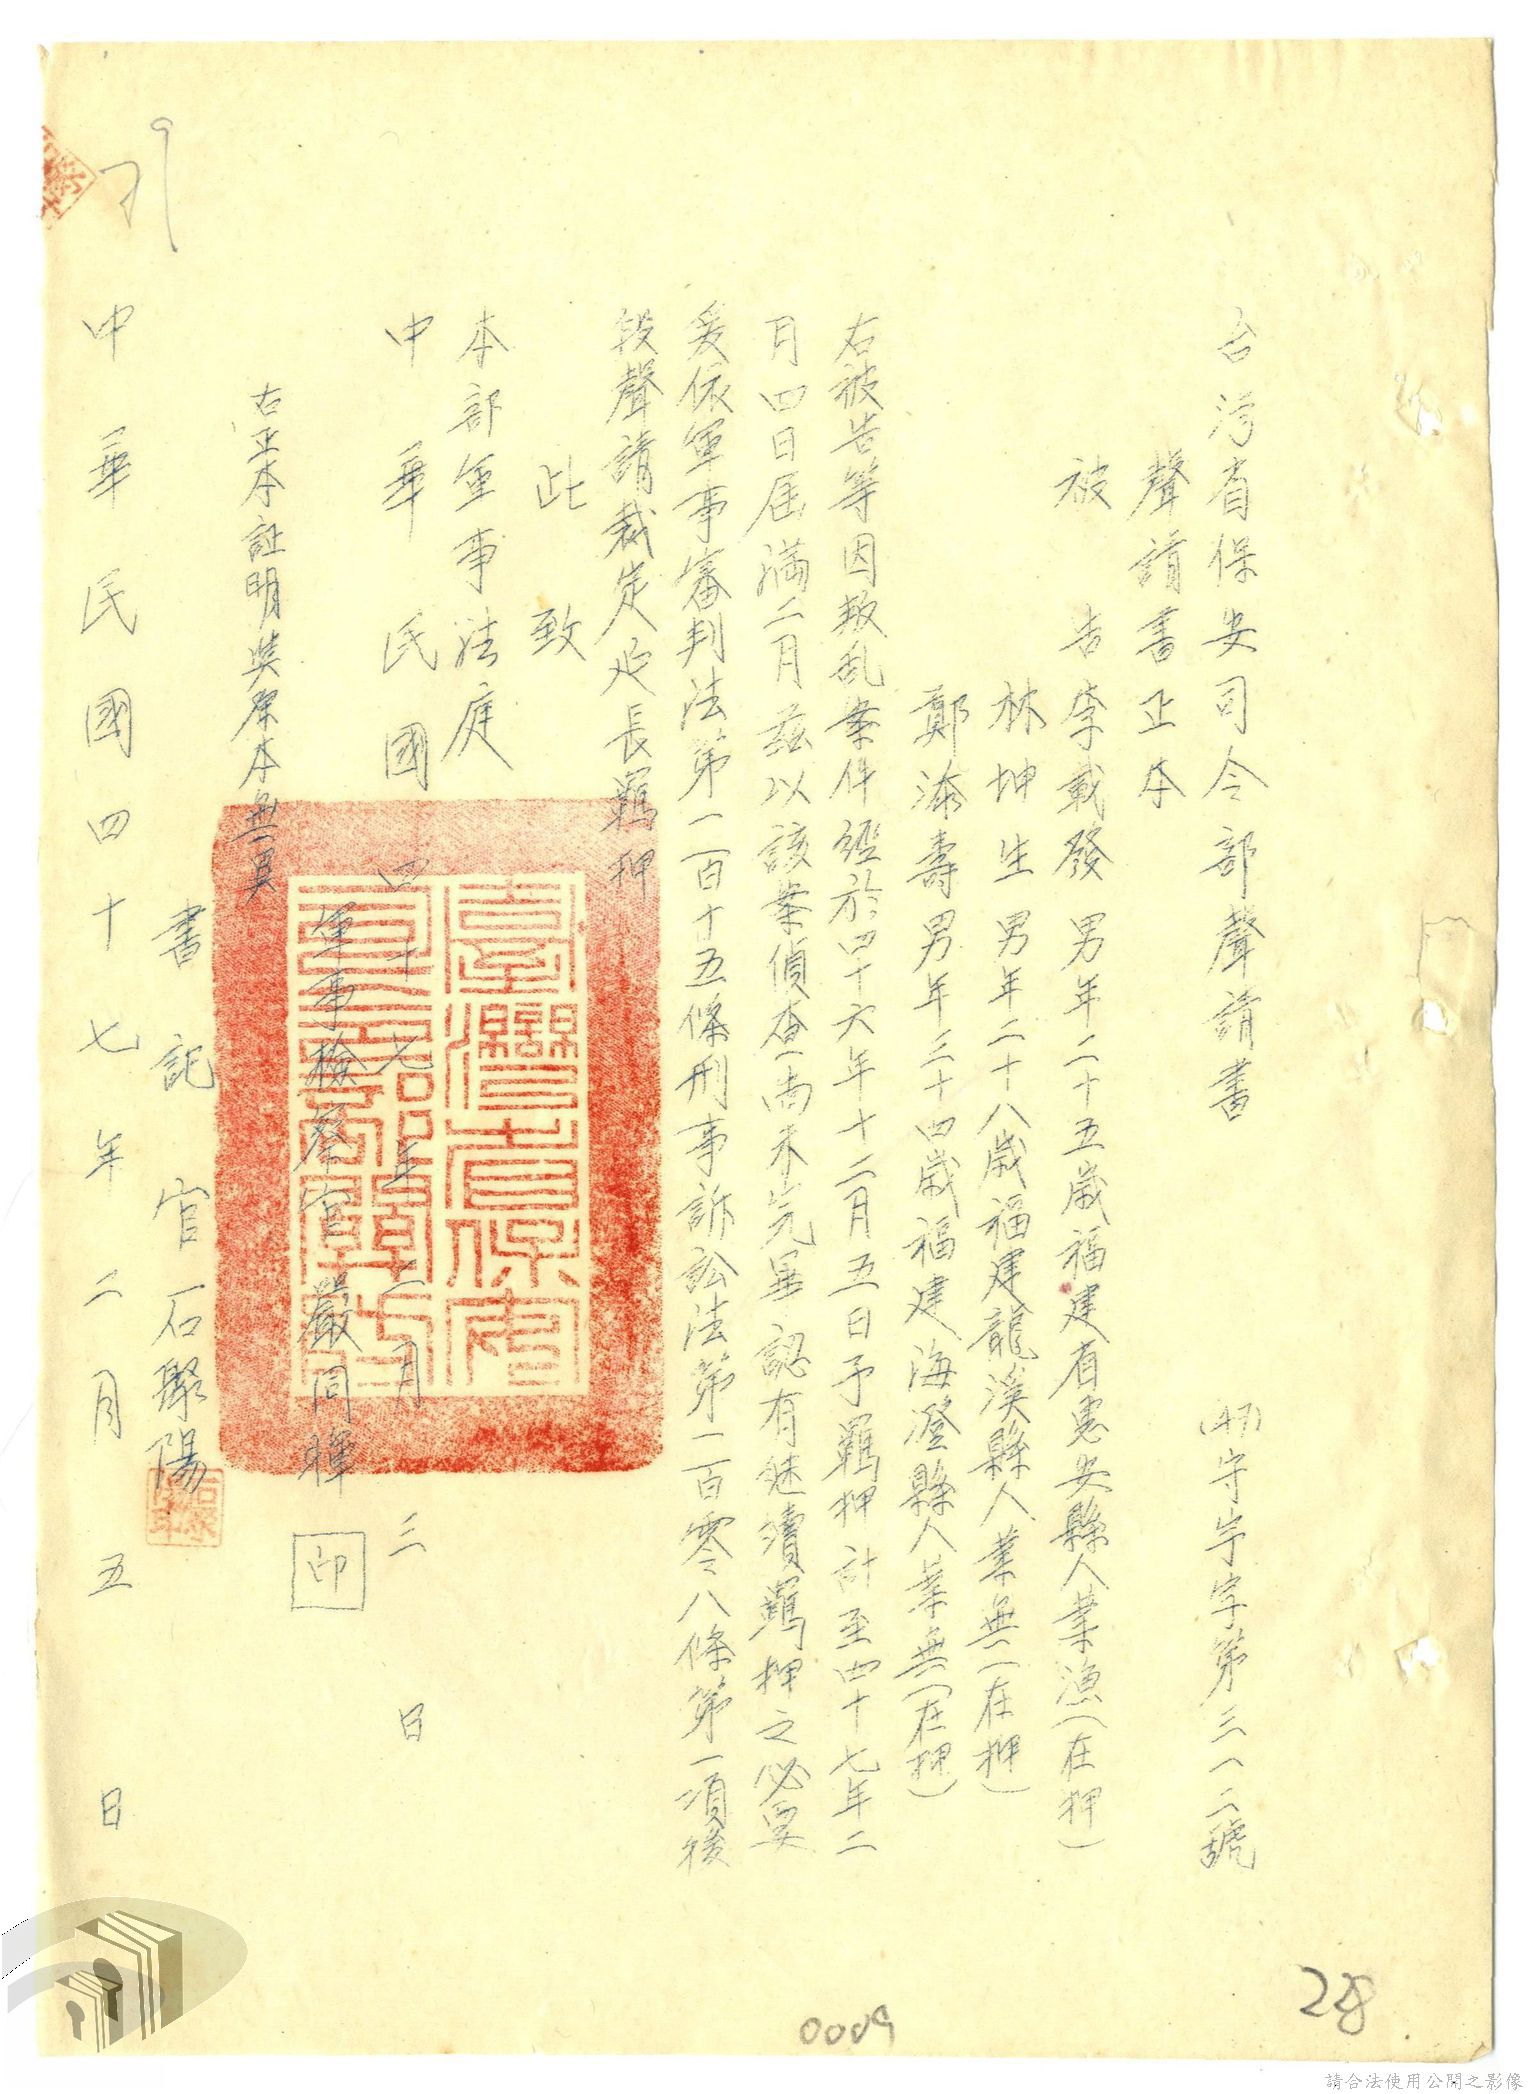 台湾省保安司令部聲請書
(47)守宇字第三一二號
聲請書正本
被告李載發 男年二十五歲福建省惠安縣人業漁(在押)
林坤生 男年二十八歲福建龍溪縣人業無(在押)
鄭添壽男年三十四歲福建海澄縣人業無(在押)
右被告等因叛乱案件經於四十六年十二月五日予羈押計至四十七年二
月四日屆滿二月茲以該案偵查尚未完畢認有继續羈押之必要
爰依軍事審判法第一百十五條刑事訴訟法第一百零八條第一項後
段聲請裁定延長羈押
此致
本部軍事法庭
中華民國四十七年二月三日
軍事檢察官嚴同暉
印
右正本証明與原本無異
書記官石聚陽
中華民國四十七年二月五日
臺灣省保安
司令部
0009
228
請合法使用公開之影像